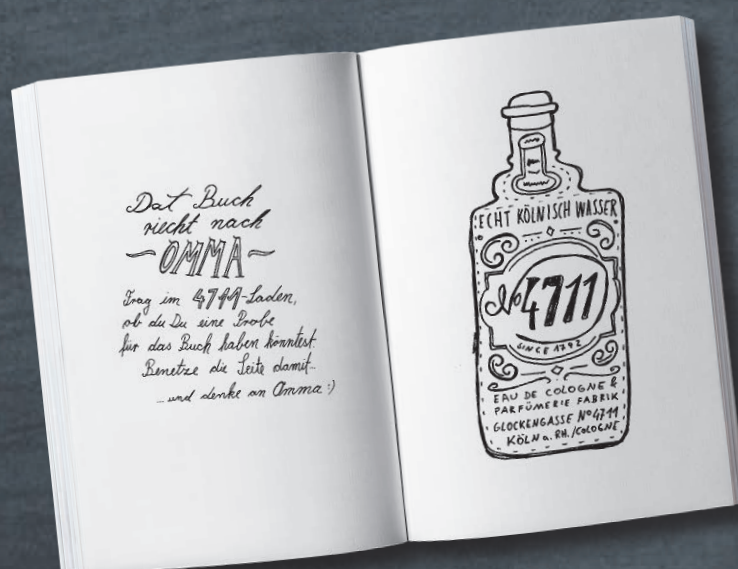 Dat Buch
riecht nach
~OMMA~
Frag im 4711-Laden,
ob du Du eine Probe
für das Buch haben könntest.
Benetze die Seite damit...
...und denke an Omma :)
ECHT KÖLNISCH WASSER
No 4711
SINCE 1792
EAU DE COLOGNE &
PARFÜMERIE FABRIK
GLOCKENGASSE No 4711
KÖLN a. RH. /COLOGNE